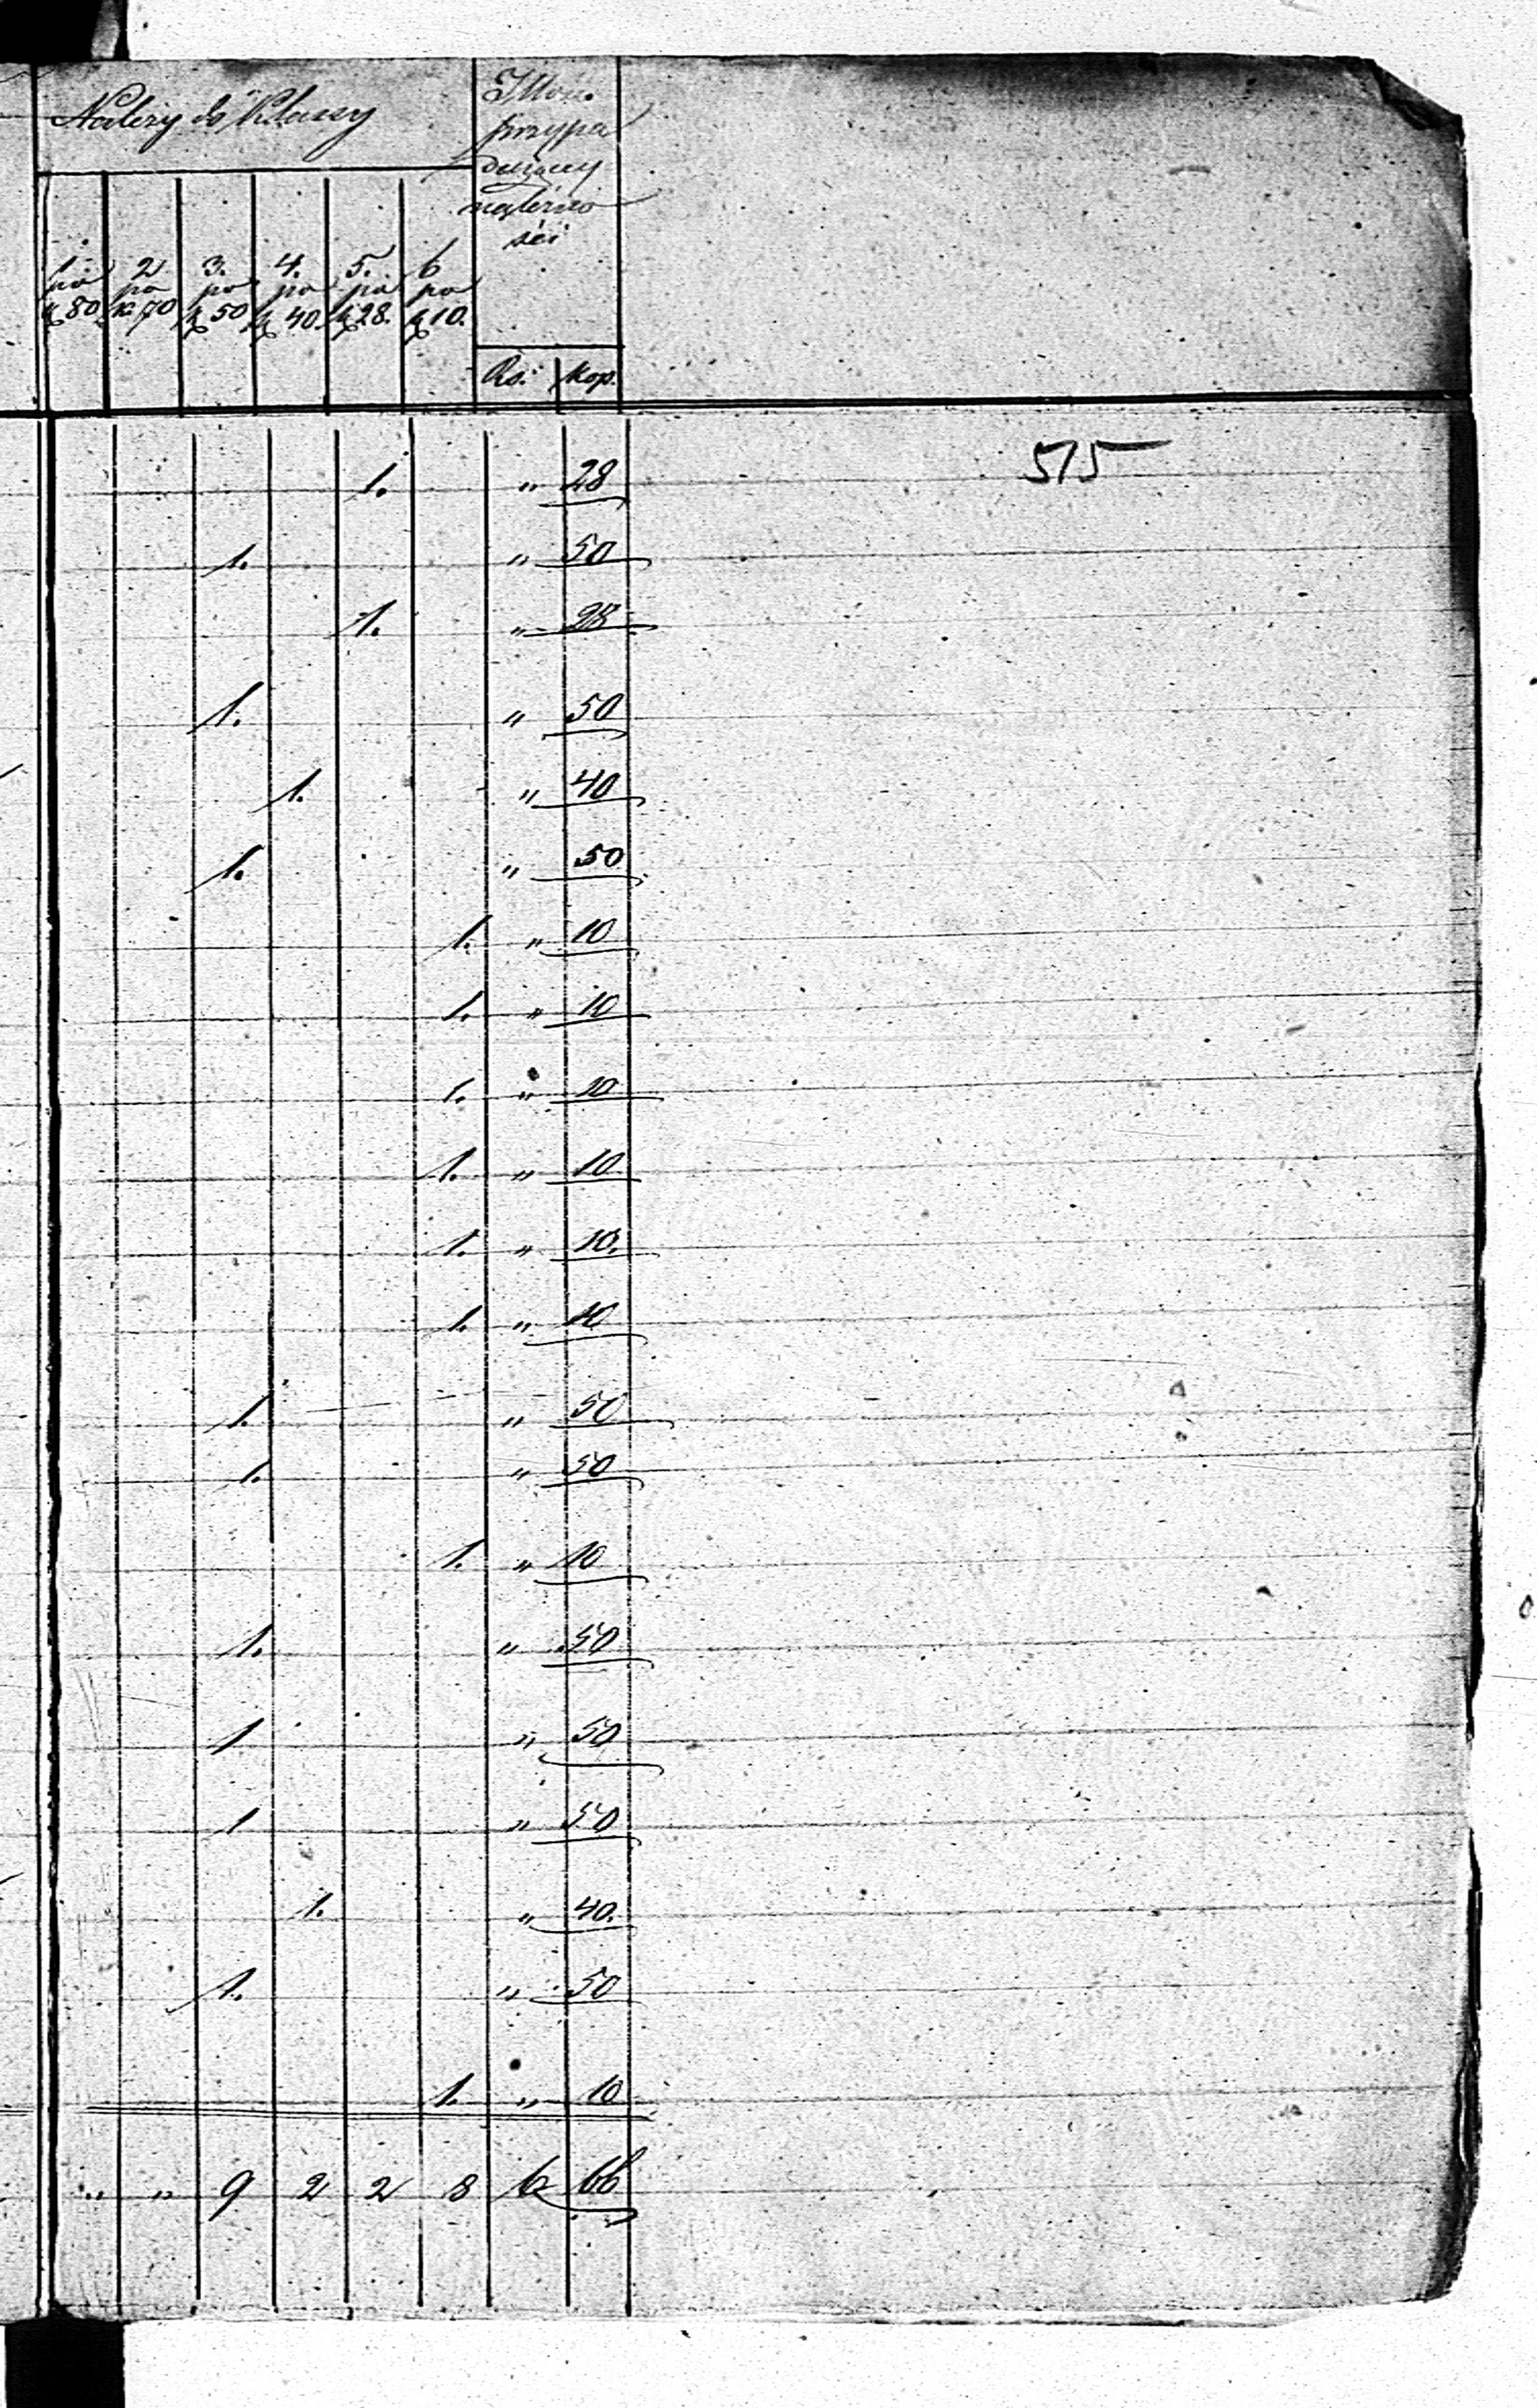 Należy do Klassy
Illość
przypa
dającej
należno
ści
1. po k. 80 2 po k. 70 3. po k. 50 4. po k. 40 5. po k. 28. 6 po k. 10.
Rs. Kop.
515
1. " 28
1. " 50
1. " 28
1. " 50
1. " 40
1. " 50
1. " 10
1. " 10
1. " 10
1. " 10
1. " 10.
1. " 10
1. " 50
1. " 50
1. " 10
1. " 50
1 " 50
1 " 50
1. " 40.
1. " 50
1. " 10
" " 9 2 2 8 6 66